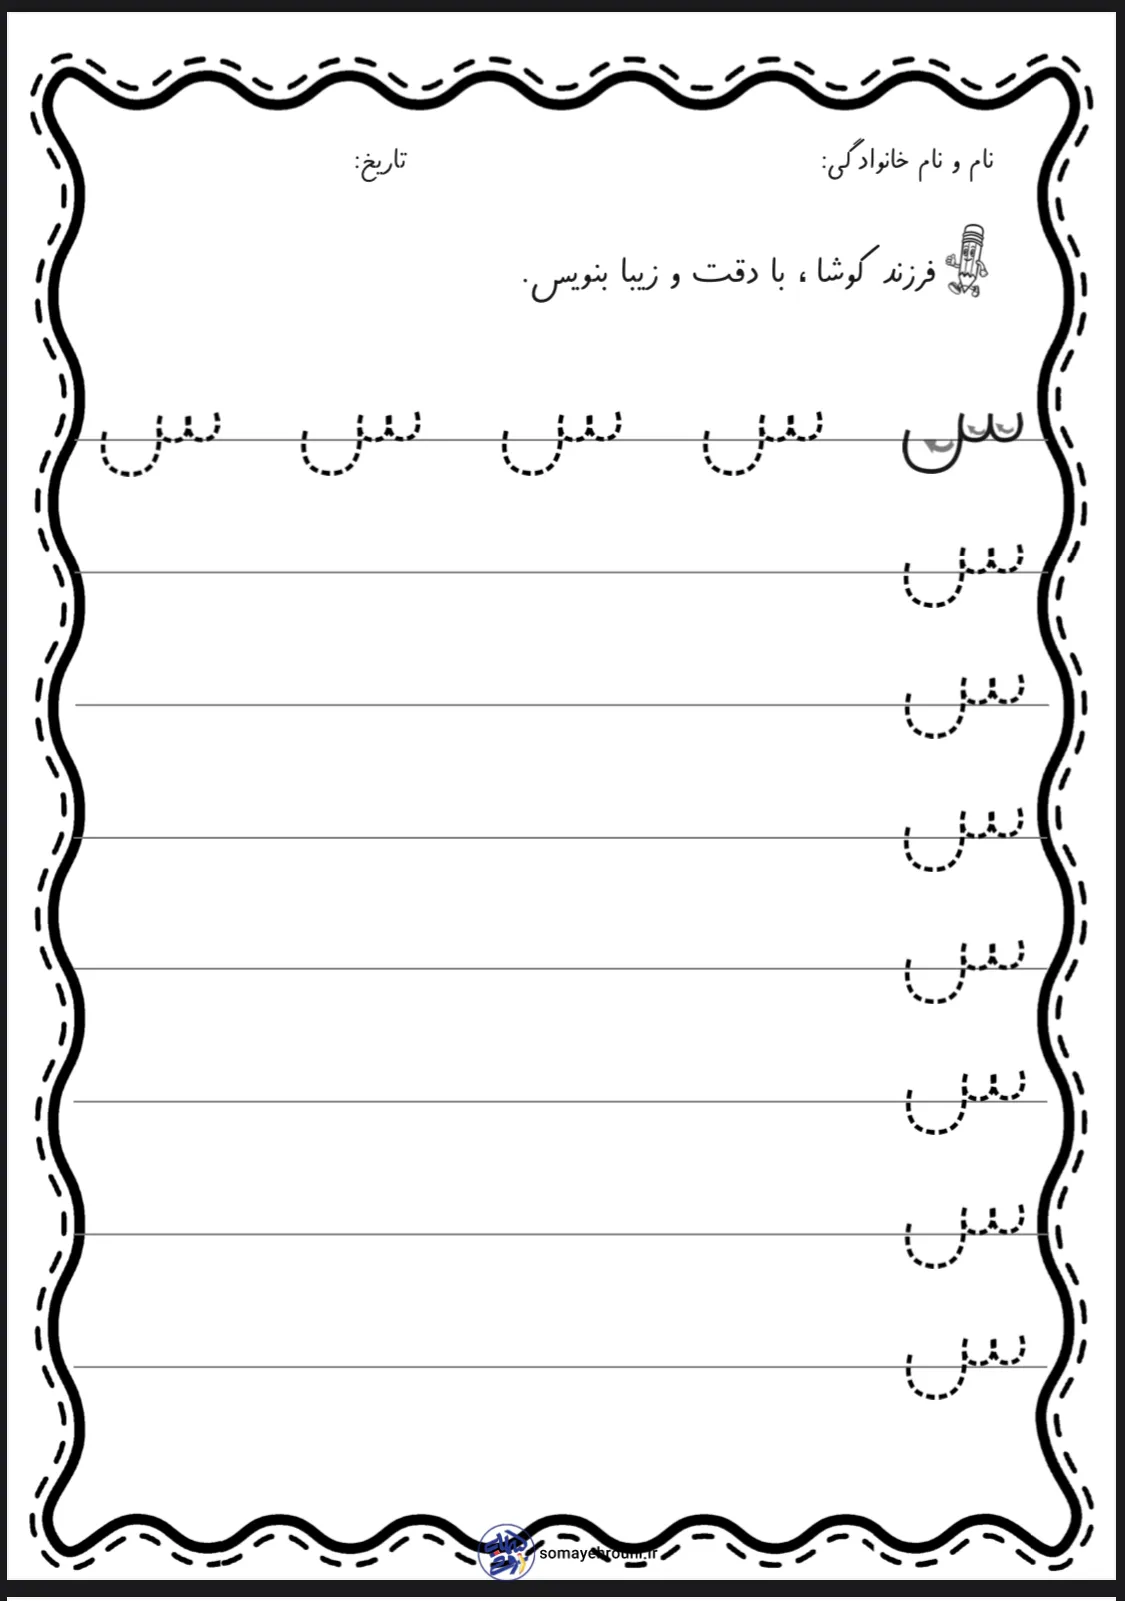 نام و نام خانوادگی: تاریخ:
فرزند کوشا ، با دقت و زیبا بنویس.
س س س س س
س
س
س
س
س
س
س
somayehrouhi.ir